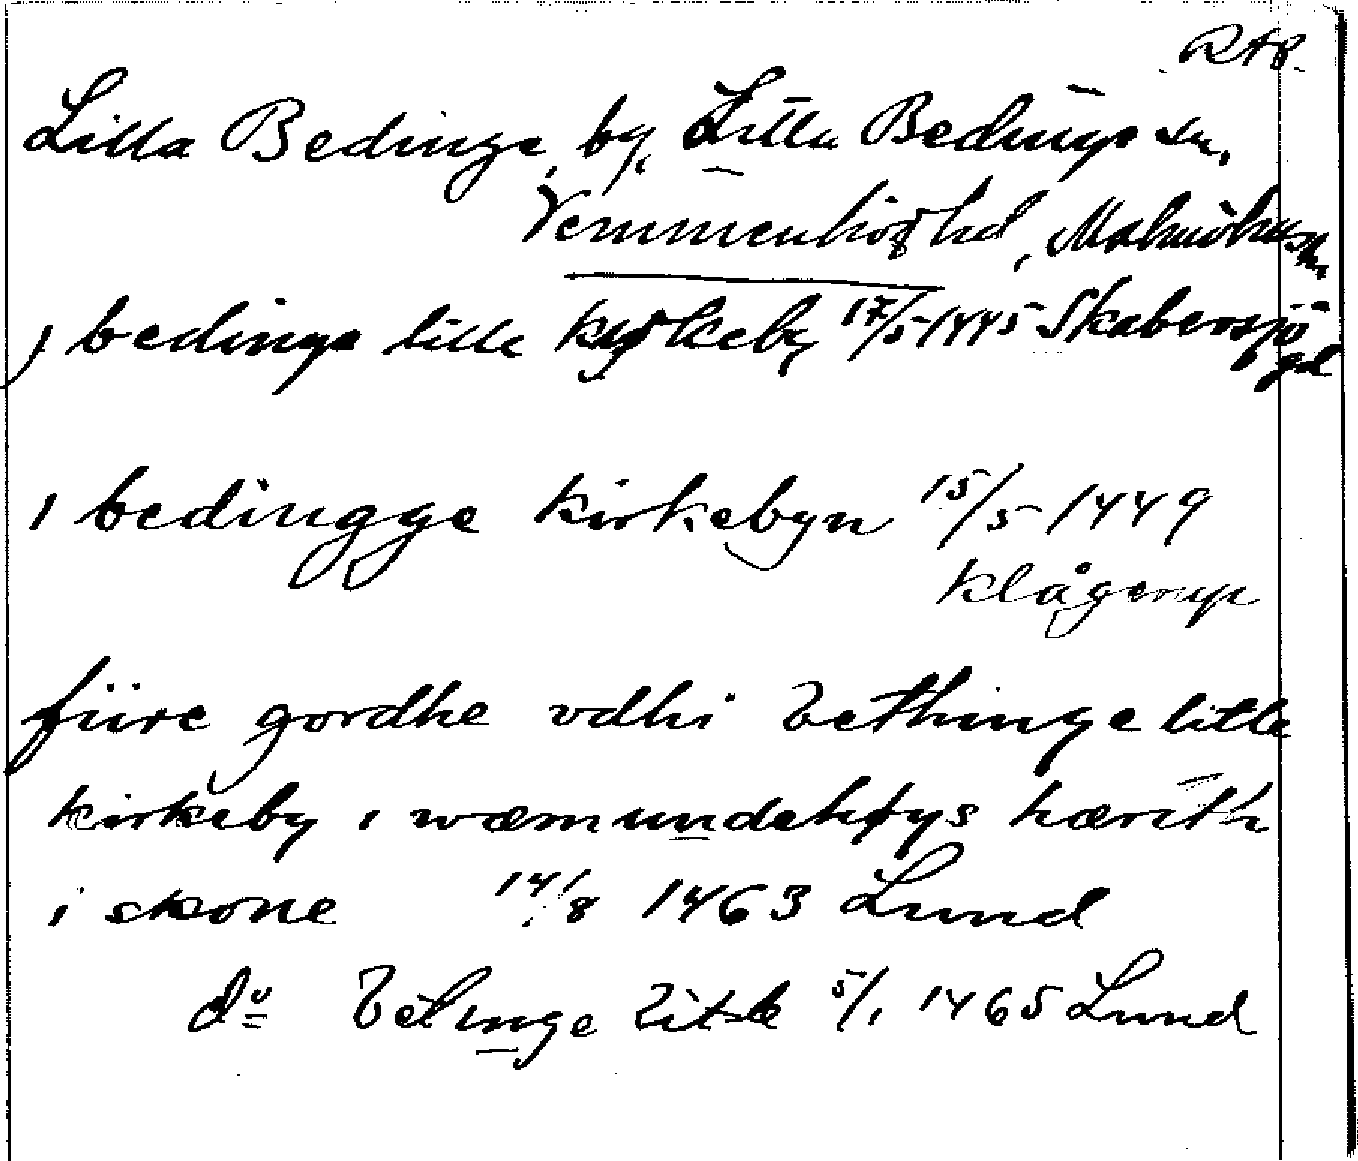 RAP.
Lilla Bedinge, by, Lilla Bedinge sn,
Vemmenhögs hd, Malmöhus ln,
j bedinge lille kyrkeby 17/5 1445 Skabersjö
gd
i bedingge kirkebyn 15/5 1449
Klågerup
fiire gordhe vdhi bethinge litle
kirkeby i wæmundehøys hærith
i skone 14/8 1463 Lund
do betinge litle 5/1 1465 Lund